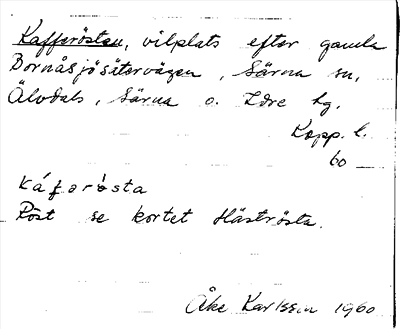 Kafferösten, vilplats efter gamla
Bornåsjösätervägen, Särna sn,
Älvdals, Särna o. Idre hg.
Kopp. l.
60
káforòsta
Röst se kortet Häströsta.
Åke Karlsson 1960